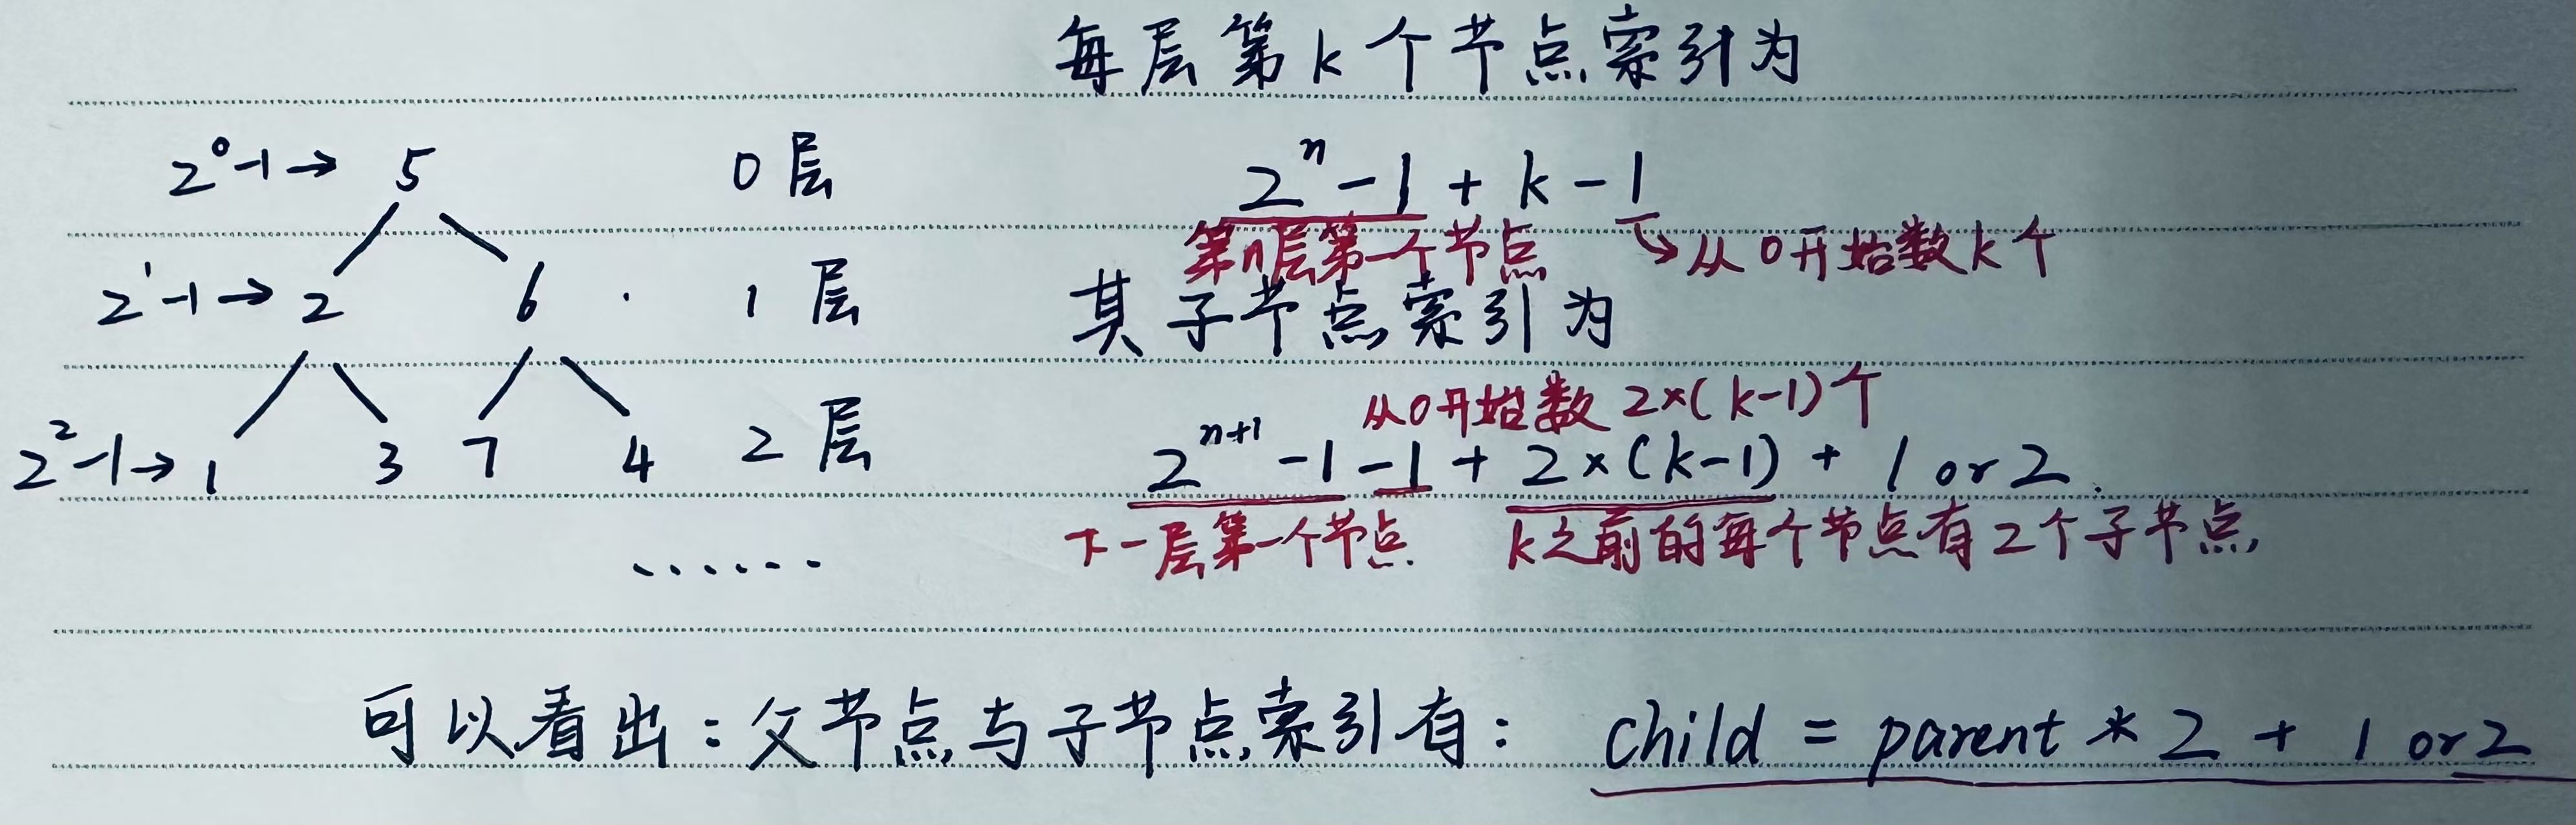 每层第k个节点索引为
2⁰-1→ 5 0层
2ⁿ-1+k-1
第n层第一个节点 ↳从0开始数k个
2¹-1→ 2 6 . 1层
其子节点索引为
从0开始数 2×(k-1)个
2²-1→ 1 3 7 4 2层
2ⁿ⁺¹-1-1+2×(k-1)+1 or 2.
下一层第一个节点. k之前的每个节点有2个子节点,
......
可以看出:父节点与子节点索引有: child = parent * 2 + 1 or 2